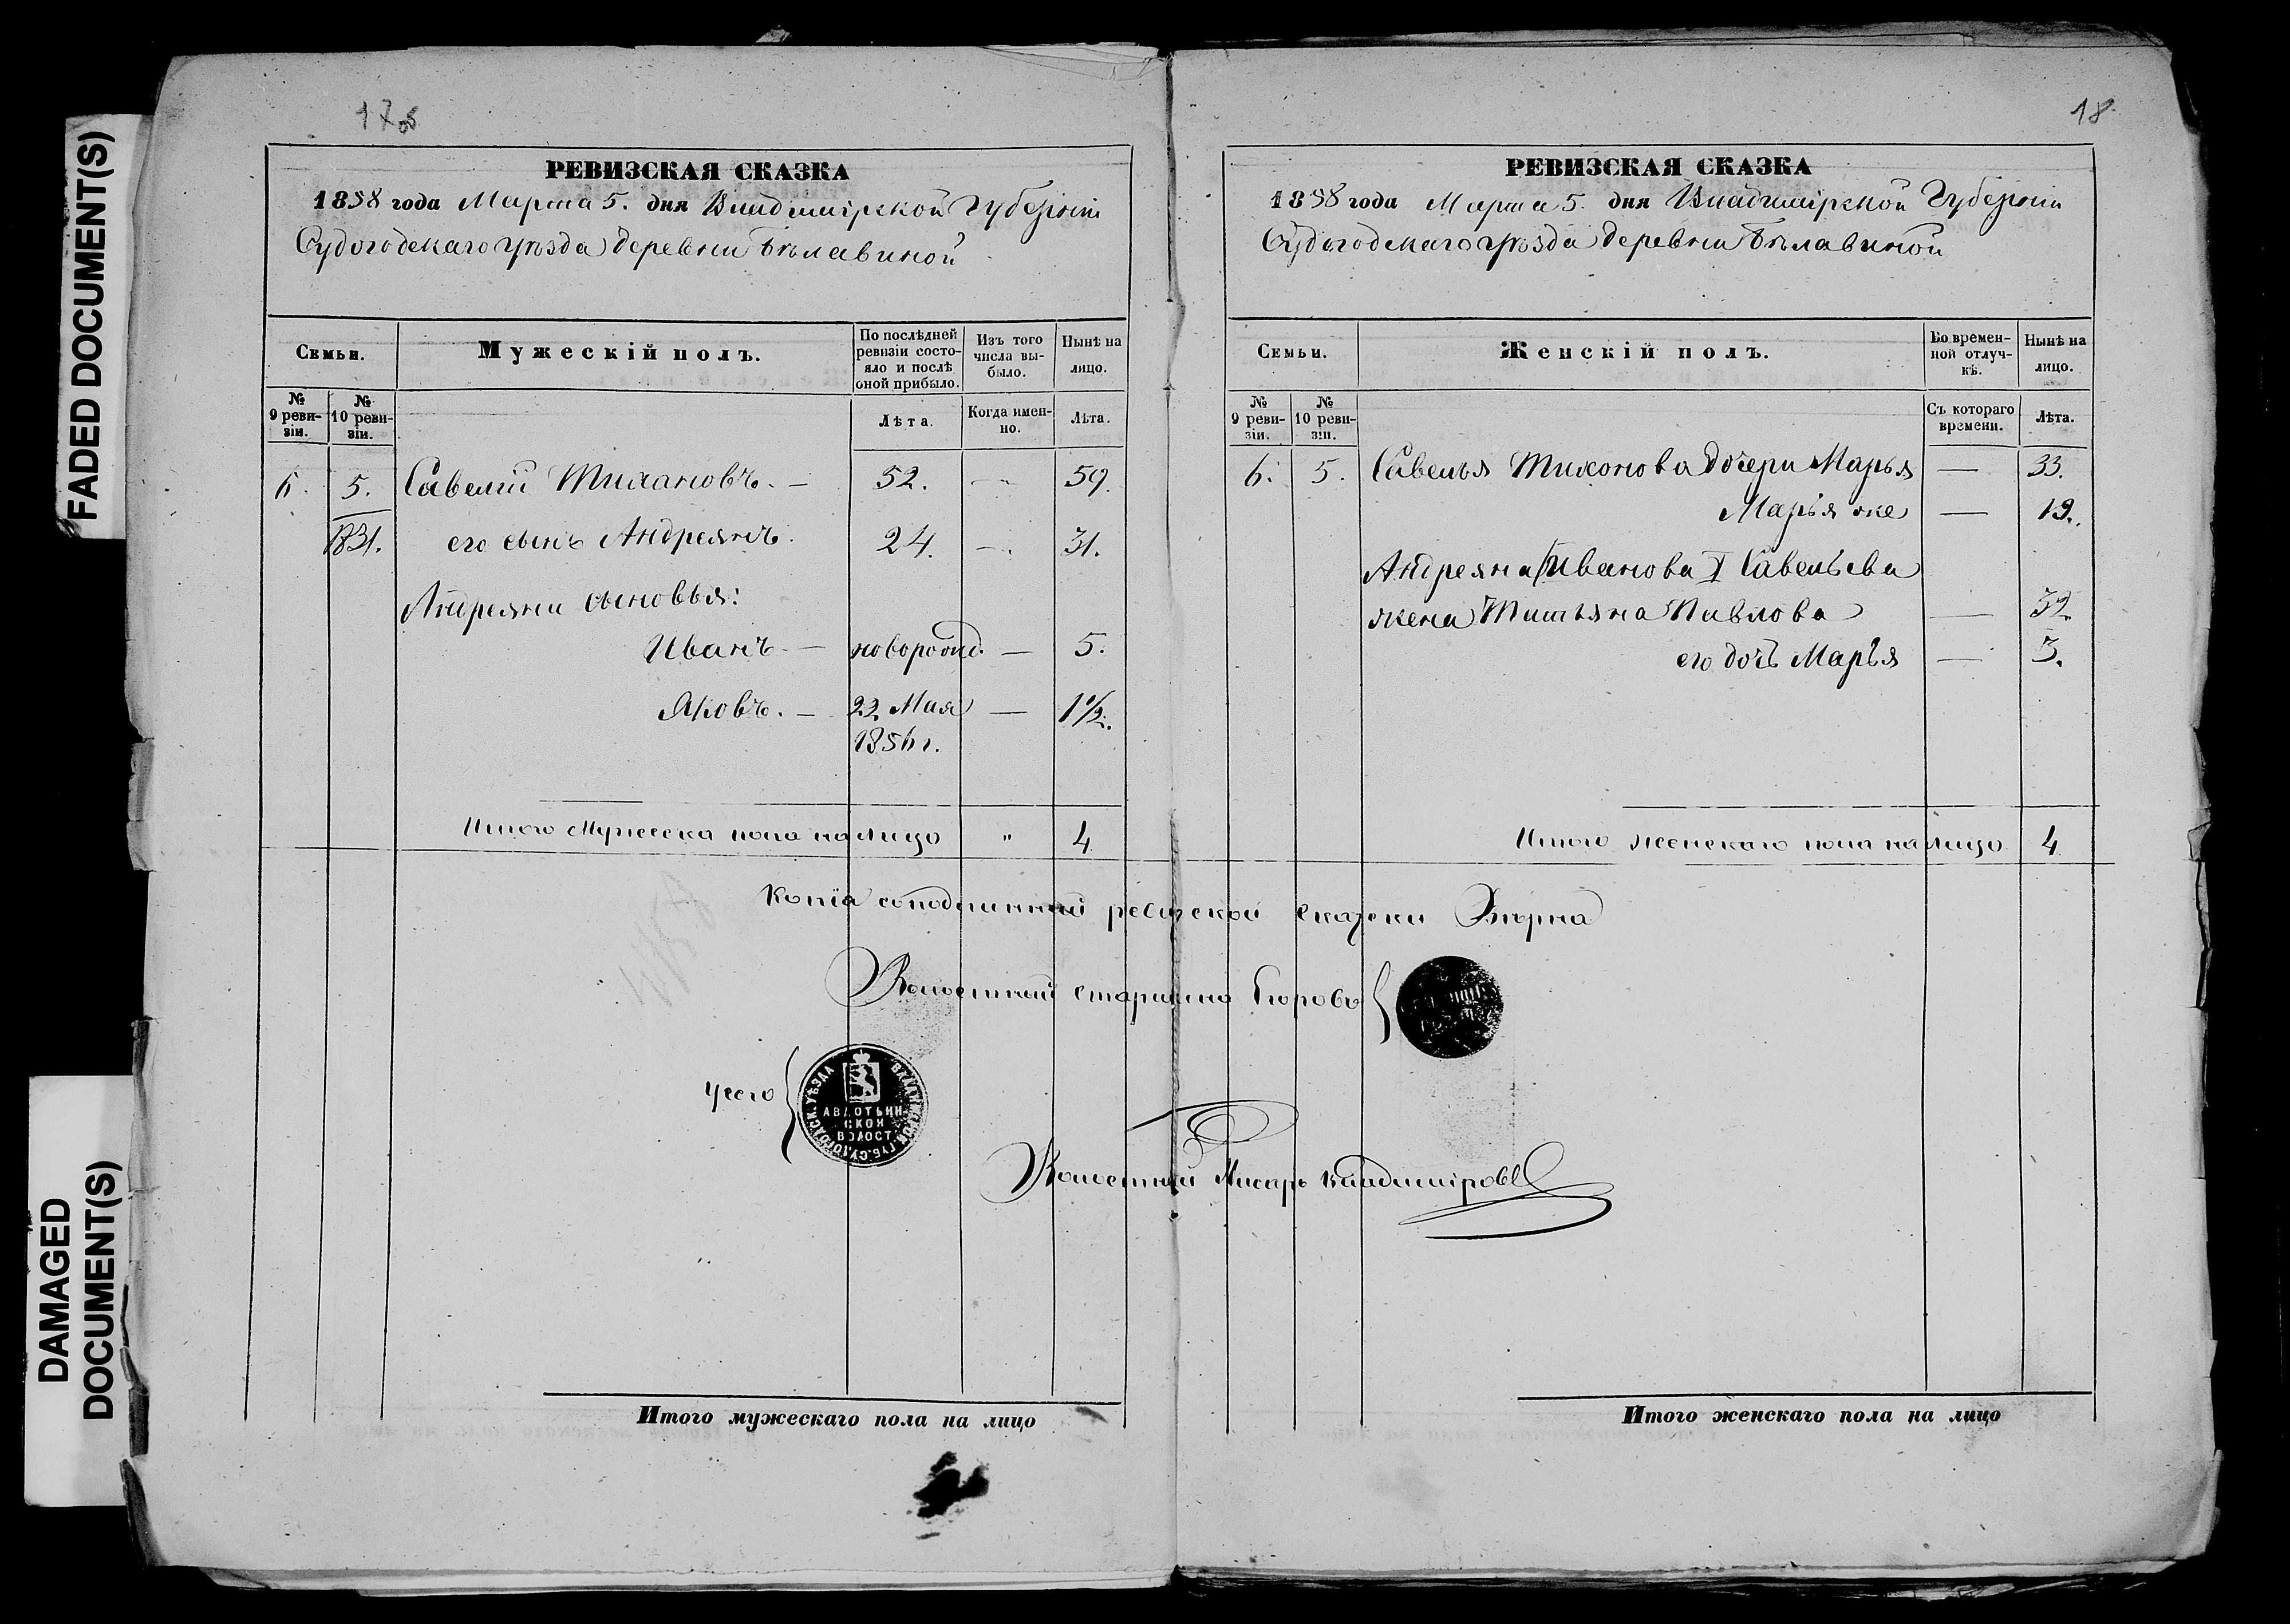 FADED DOCUMENT(S)
DAMAGED
DOCUMENT(S)
17об
РЕВИЗСКАЯ СКАЗКА
1858 года Марта 5. дня Владимірской Губерніи
Судогодскаго уѣзда деревни Бѣлавиной
Семьи.
Мужескій полъ.
По послѣдней
ревизіи состо-
яло и послѣ
оной прибыло.
Изъ того
числа вы-
было.
Нынѣ на
лицо.
№
9 реви-
зіи.
№
10 реви-
зіи.
Лѣта.
Когда имен-
но.
Лѣта.
6. 5. Савелій Тихановъ. — 52. — 59.
1831. его сынъ Андреянъ. 24. — 31.
Андреяна сыновья:
Иванъ. — новорожд. — 5.
Яковъ. — 22 Мая — 1½.
1856 г.
Итого Мужеска пола налицо " 4
18
РЕВИЗСКАЯ СКАЗКА
1858 года Марта 5. дня Владимірской Губерніи
Судогодскаго уѣзда деревни Бѣлавиной
Семьи.
Женскій полъ.
Во времен-
ной отлуч-
кѣ.
Нынѣ на
лицо.
№
9 реви-
зіи.
№
10 реви-
зіи.
Съ котораго
времени.
Лѣта.
6. 5. Савелья Тихонова дочери Марья — 33.
Марья же — 19.
Андреяна Иванова I Савельева
жена Татьяна Павлова — 32.
его дочь Марья — 3.
Итого женскаго пола налицо 4
Копія с подлинной ревизской сказки Вѣрна
Волостной старшина
АВДОТЬИН
СКОЙ
ВОЛОСТ
Волостный Писарь Владиміровъ
Итого мужескаго пола на лицо
Итого женскаго пола на лицо